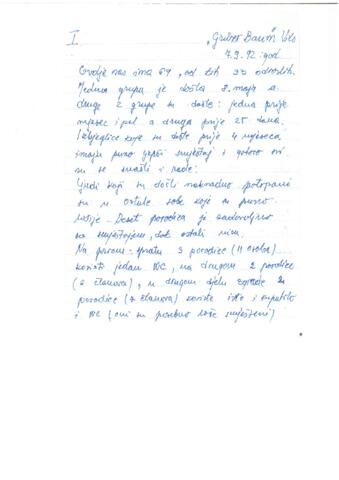 I.
"Gruber Baum" Vels
7.9.92. god.
Ovdje nas ima 64, od tih 30 odraslih.
Jedna grupa je došla 8. maja a
druge 2 grupe su došle: jedna prije
mjesec i pol a druga prije 25 dana.
Izbjeglice koje su došle prije 4 mjeseca
imaju puno ljepši smještaj i gotovo svi
su se snašli i rade.
Ljudi koji su došli naknadno potrpani
su u ostale sobe koje su puno
lošije. Deset porodica je zadovoljno
sa smještajem, dok ostali nisu.
Na prvom spratu 3 porodice (11 osoba)
koristi jedan WC, na drugom 2 porodice
(8 članova), u drugom djelu zgrade 2
porodice (7 članova) koriste isto i kupatilo
i WC (oni su posebno loše smješteni)